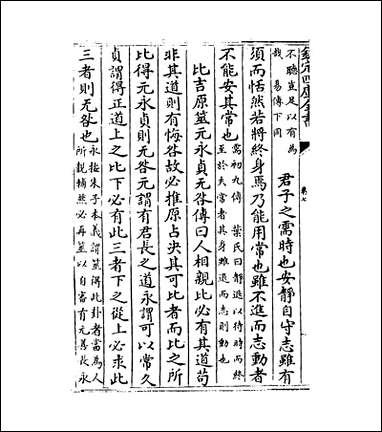 欽定四庫全書
卷七
不聽豈足以有為
哉 易傳下同
君子之需時也安靜自守志雖有
須而恬然若將終身焉乃能用常也雖不進而志動者
不能安其常也
需初九傳 葉氏曰靜退以待時而終
至於失常者其身雖退而志則動也
比吉原筮元永貞无咎傳曰人相親比必有其道苟
非其道則有悔咎故必推原占決其可比者而比之所
比得元永貞則无咎元謂有君長之道永謂可以常久
貞謂得正道上之比下必有此三者下之從上必求此
三者則无咎也
永按朱子本義謂筮得此卦者當為人
所親輔然必再筮以自審有元善長永